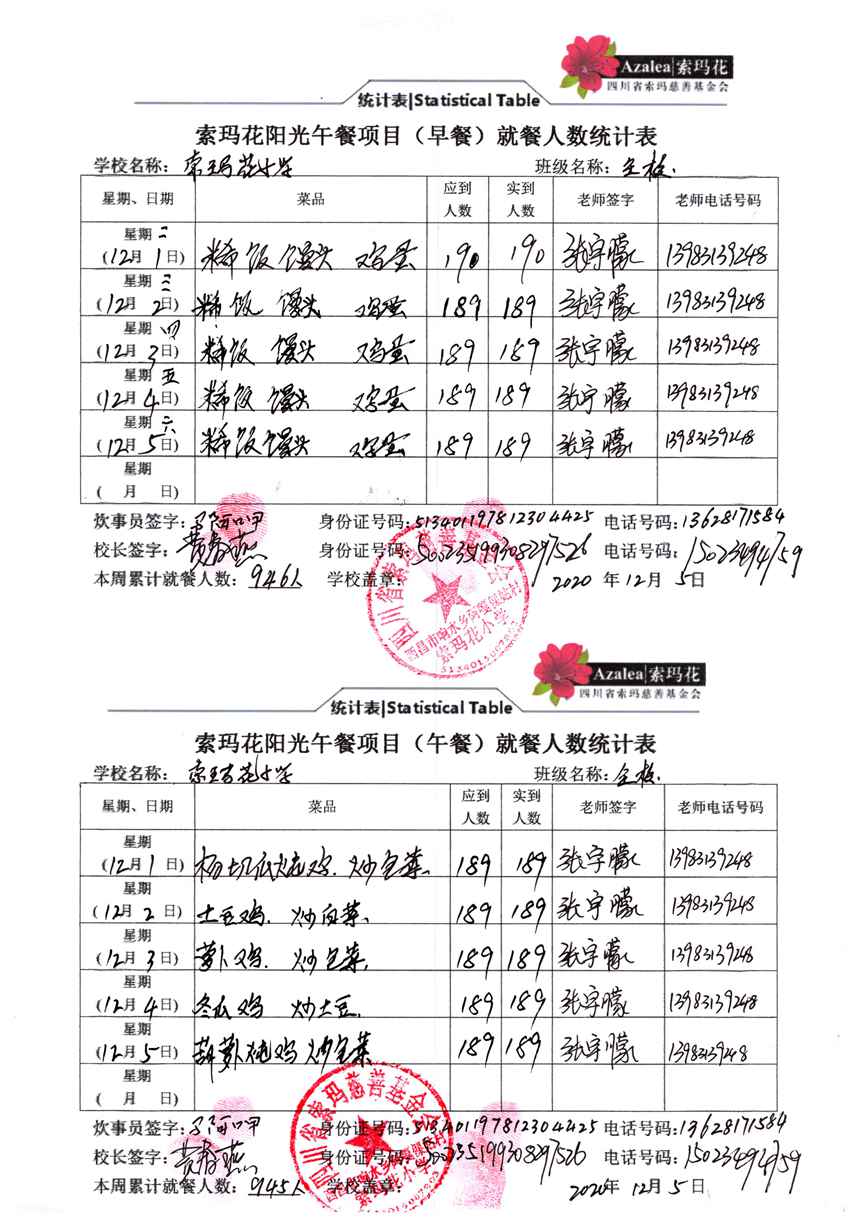 Azalea|索玛花
四川省索玛慈善基金会
统计表|Statistical Table
索玛花阳光午餐项目（早餐）就餐人数统计表
学校名称：索玛花小学 班级名称：全校.
星期、日期 菜品 应到人数 实到人数 老师签字 老师电话号码
星期二
(12月1日) 稀饭 馒头 鸡蛋 190 190 张宇朦 13983139248
星期三
(12月2日) 稀饭 馒头 鸡蛋 189 189 张宇朦 13983139248
星期四
(12月3日) 稀饭 馒头 鸡蛋 189 189 张宇朦 13983139248
星期五
(12月4日) 稀饭 馒头 鸡蛋 189 189 张宇朦 13983139248
星期六
(12月5日) 稀饭 馒头 鸡蛋 189 189 张宇朦 13983139248
星期
( 月 日)
炊事员签字： 阿呷 身份证号码：513401197812304425 电话号码：13628171584
校长签字：黄春燕 身份证号码：500235199308297526 电话号码：15023494759
本周累计就餐人数：946人 学校盖章： 2020年12月5日
四川省索玛慈善基金会
西昌市响水乡
索玛花小学
Azalea|索玛花
四川省索玛慈善基金会
统计表|Statistical Table
索玛花阳光午餐项目（午餐）就餐人数统计表
学校名称：索玛花小学 班级名称：全校.
星期、日期 菜品 应到人数 实到人数 老师签字 老师电话号码
星期
(12月1日) 炖鸡. 炒包菜. 189 189 张宇朦 13983139248
星期
(12月2日) 土豆鸡. 炒白菜、 189 189 张宇朦 13983139248
星期
(12月3日) 萝卜鸡. 炒包菜. 189 189 张宇朦 13983139248
星期
(12月4日) 冬瓜鸡 炒土豆. 189 189 张宇朦 13983139248
星期
(12月5日) 胡萝卜炖鸡 炒包菜 189 189 张宇朦 13983139248
星期
( 月 日)
炊事员签字： 阿呷 身份证号码：513401197812304425 电话号码：13628171584
校长签字：黄春燕 身份证号码：500235199308297526 电话号码：15023494759
本周累计就餐人数：945人 学校盖章： 2020年12月5日
四川省索玛慈善基金会
西昌市响水乡
索玛花小学